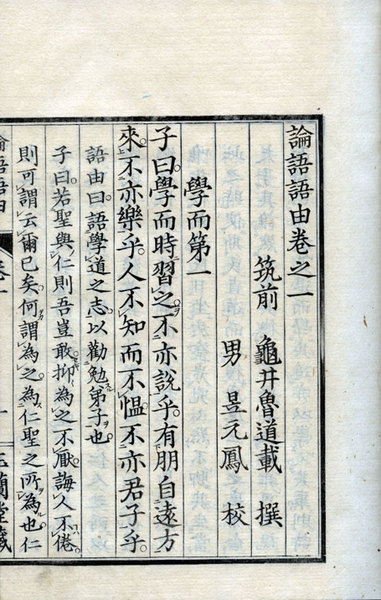 論語語由卷之一
筑前 龜井魯道載 撰
男 昱元鳳 校
學而第一
子曰學而時習之不亦說乎有朋自遠方
來不亦樂乎人不知而不慍不亦君子乎
語由曰語學道之志以勸勉弟子也
子曰若聖與仁則吾豈敢抑為之不厭誨人不倦
則可謂云爾已矣何謂為之為仁聖之所為也仁
論語語由 卷 蘭堂藏